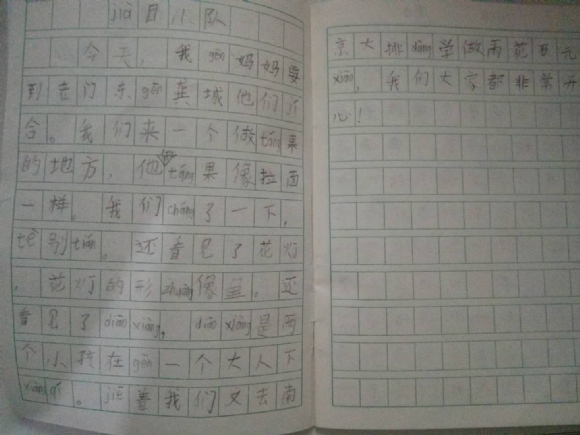 jiǎ日小队
今天，我gēn妈妈要
到老门东gēn龚城他们汇
合。我们来一个做táng果
的地方，他做táng果像拉面
一样。我们cháng了一下，
tè别tián。还看见了花灯
，花灯的形zhuàng像鱼。还
看见了diāo xiàng，diāo xiàng是两
个小孩在gēn一个大人下
xiàng qí。jiē着我们又去南
京大排dàng学做雨花石元
xiāo，我们大家都非常开
心！